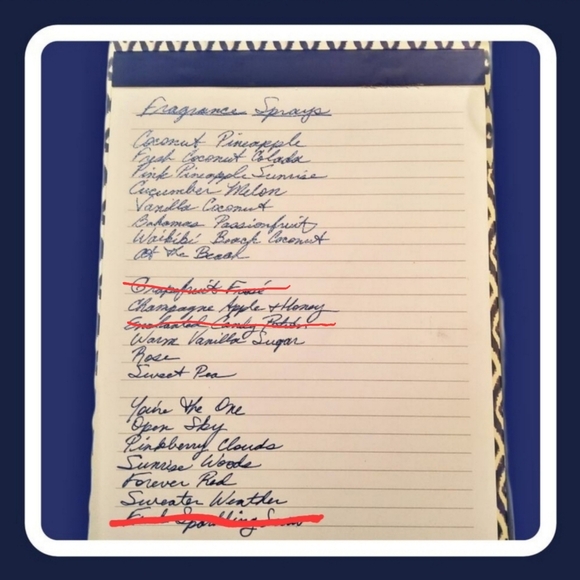 Fragrance Sprays
Coconut Pineapple
Fresh Coconut Colada
Pink Pineapple Sunrise
Cucumber Melon
Vanilla Coconut
Bahamas Passionfruit
Waikiki Beach Coconut
At the Beach
Grapefruit Frosé
Champagne Apple & Honey
Enchanted Candy Potion
Warm Vanilla Sugar
Rose
Sweet Pea
You're the One
Open Sky
Pinkberry Clouds
Sunrise Woods
Forever Red
Sweater Weather
Sparkling